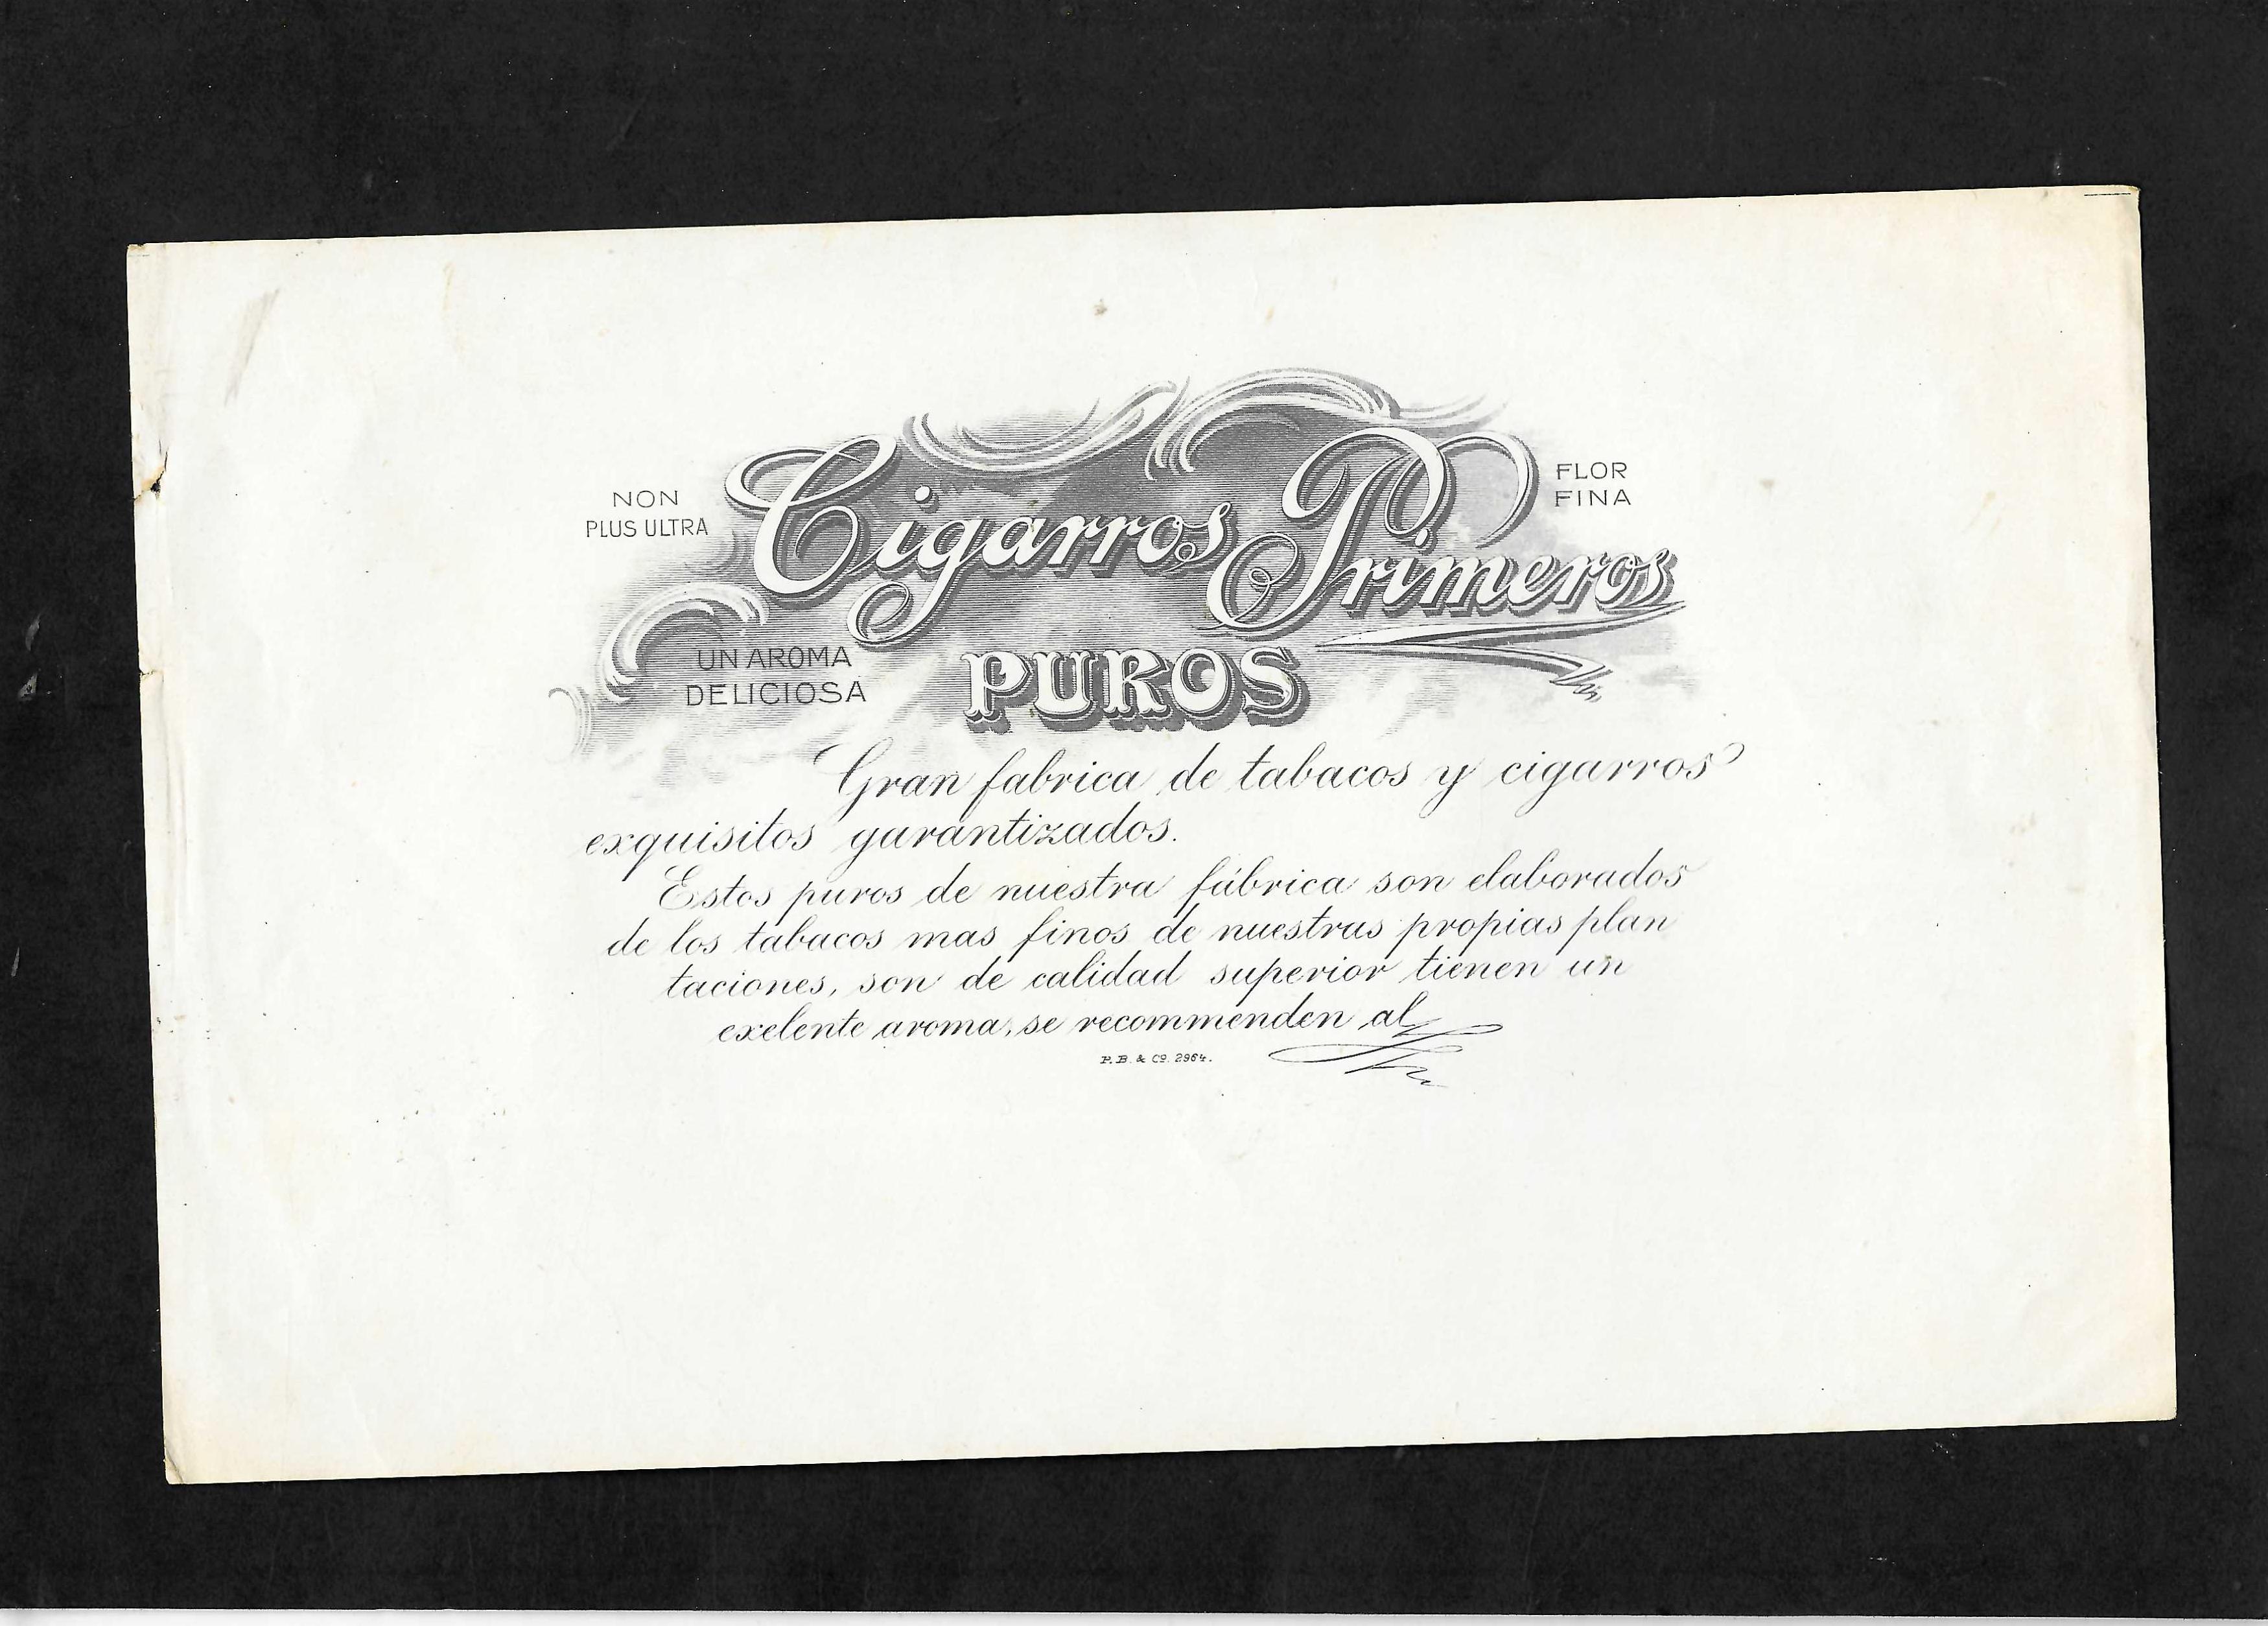 NON
PLUS ULTRA
Cigarros Primeros
FLOR
FINA
UN AROMA
DELICIOSA
PUROS
Gran fabrica de tabacos y cigarros
exquisitos garantizados.
Estos puros de nuestra fábrica son elaborados
de los tabacos mas finos de nuestras propias plan
taciones, son de calidad superior tienen un
exelente aroma, se recommenden al
P. B. & Co. 2964.